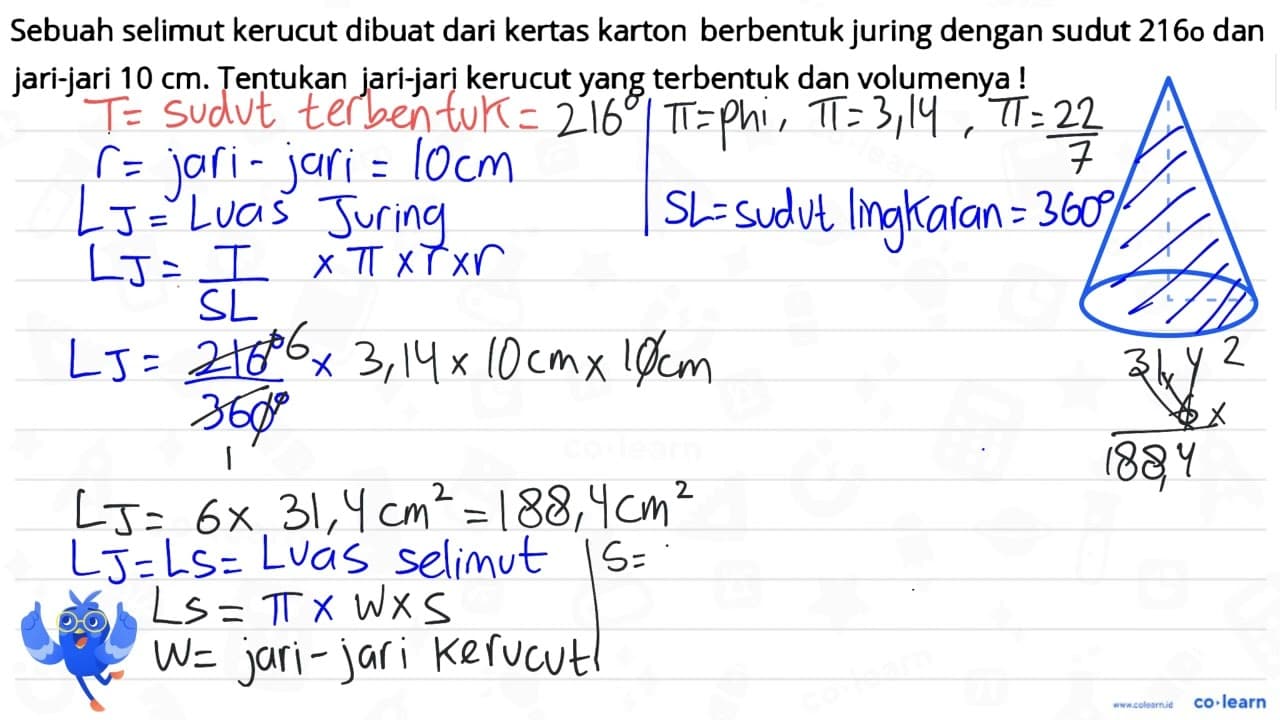 Sebuah selimut kerucut dibuat dari kertas karton berbentuk juring dengan sudut 216o dan
jari-jari 10 cm. Tentukan jari-jari kerucut yang terbentuk dan volumenya !
T= sudut terbentuk = 216°
π=phi, π=3,14, π=22/7
r= jari-jari = 10cm
LJ= Luas Juring
SL=sudut lingkaran=360°
LJ= T/SL xπxrxr
LJ= 216°/360° 6 x 3,14x10cmx10cm
1
31,4 2
6 x
188,4
LJ= 6x 31,4cm²=188,4cm²
LJ=LS= Luas selimut
S=
LS= π x W x S
W= jari-jari kerucut
co·learn
www.colearn.id co·learn